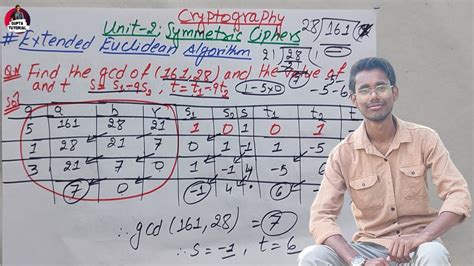 GUPTA TUTORIAL
Cryptography
Unit-2: Symmetric Ciphers
# Extended Euclidean Algorithm
28 161
21 28 1
7
Q.1 Find the gcd of (161, 28) and the value of
and t s = s1 - qs2, t = t1 - qt2
1-5x0
-5-6
Sol
q a b r s1 s2 s t1 t2
5 161 28 21 1 0 1 0 1
1 28 21 7 0 1 -1 1 -5
3 21 7 0 1 -1 4 -5 6
7 0 -1 4 6
∴ gcd (161, 28) = 7
∴ s = -1, t = 6